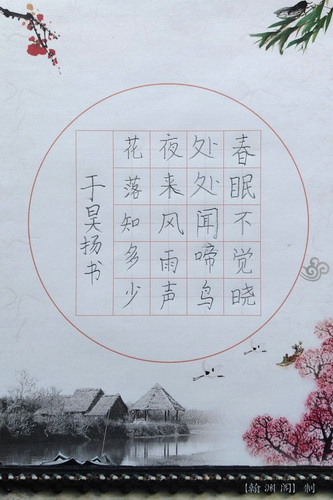 春眠不觉晓
处处闻啼鸟
夜来风雨声
花落知多少
于昊扬书
【翰渊阁】制